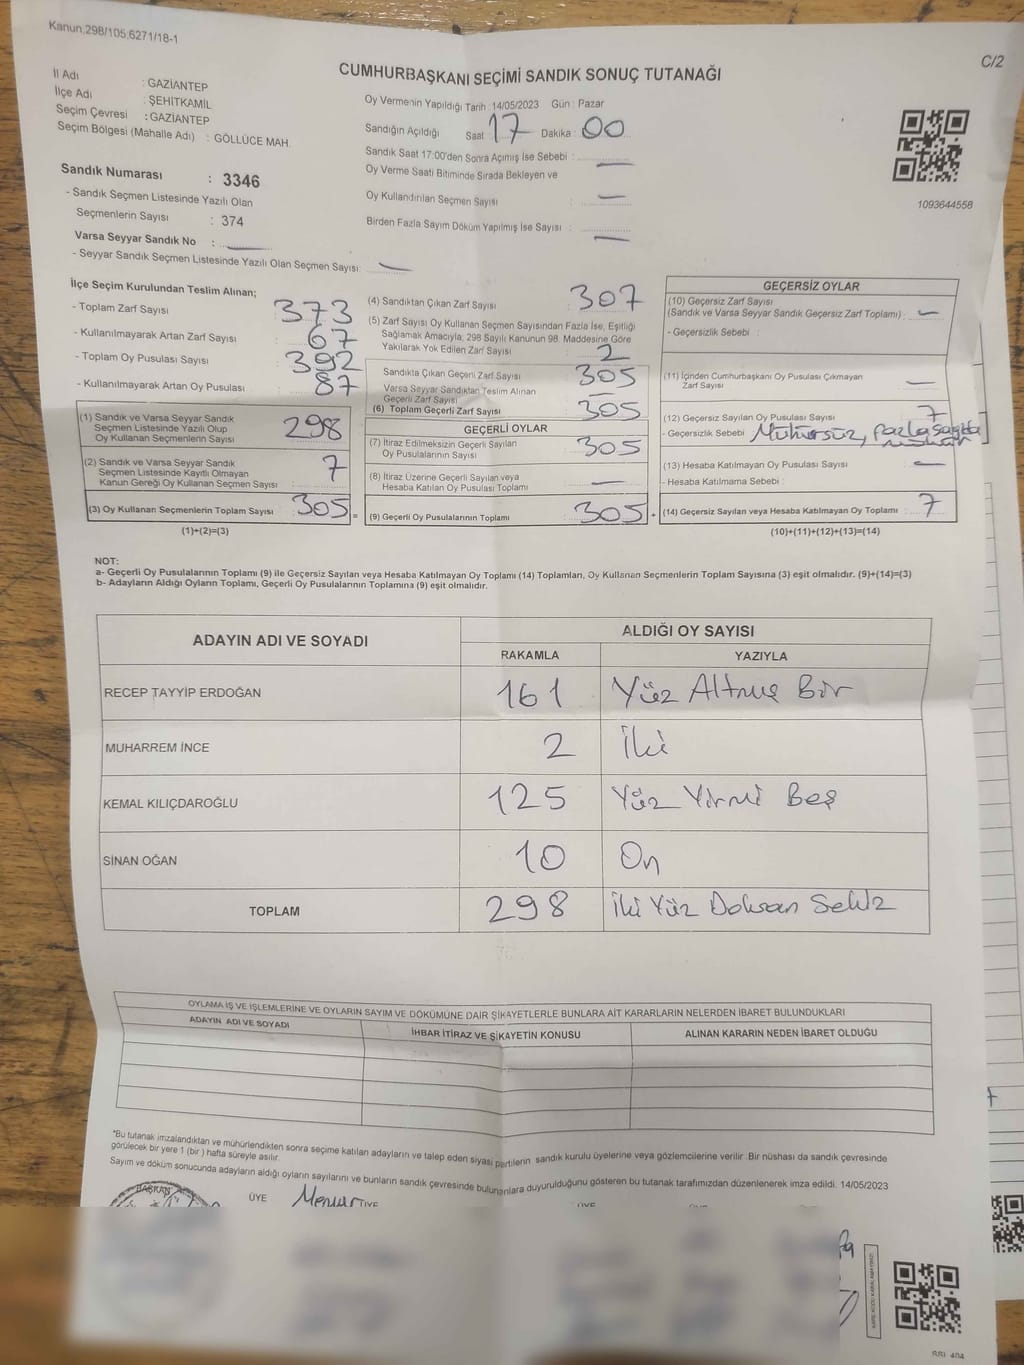 Kanun;298/105;6271/18-1
C/2
CUMHURBAŞKANI SEÇİMİ SANDIK SONUÇ TUTANAĞI
İl Adı : GAZİANTEP
İlçe Adı : ŞEHİTKAMİL
Seçim Çevresi : GAZİANTEP
Seçim Bölgesi (Mahalle Adı) : GÖLLÜCE MAH.
Oy Vermenin Yapıldığı Tarih :14/05/2023 Gün : Pazar
Sandığın Açıldığı Saat 17 Dakika : 00
Sandık Saat 17:00'den Sonra Açımış İse Sebebi : —
Oy Verme Saati Bitiminde Sırada Bekleyen ve
Oy Kullandırılan Seçmen Sayısı : —
Birden Fazla Sayım Döküm Yapılmış İse Sayısı : —
1093644558
Sandık Numarası : 3346
- Sandık Seçmen Listesinde Yazılı Olan
Seçmenlerin Sayısı : 374
Varsa Seyyar Sandık No : —
- Seyyar Sandık Seçmen Listesinde Yazılı Olan Seçmen Sayısı: —
İlçe Seçim Kurulundan Teslim Alınan;
- Toplam Zarf Sayısı 373
- Kullanılmayarak Artan Zarf Sayısı 67
- Toplam Oy Pusulası Sayısı 392
- Kullanılmayarak Artan Oy Pusulası 87
(1) Sandık ve Varsa Seyyar Sandık
Seçmen Listesinde Yazılı Olup
Oy Kullanan Seçmenlerin Sayısı 298
(2) Sandık ve Varsa Seyyar Sandık
Seçmen Listesinde Kayıtlı Olmayan
Kanun Gereği Oy Kullanan Seçmen Sayısı 7
(3) Oy Kullanan Seçmenlerin Toplam Sayısı 305 =
(1)+(2)=(3)
(4) Sandıktan Çıkan Zarf Sayısı 307
(5) Zarf Sayısı Oy Kullanan Seçmen Sayısından Fazla İse, Eşitliği
Sağlamak Amacıyla; 298 Sayılı Kanunun 98. Maddesine Göre
Yakılarak Yok Edilen Zarf Sayısı 2
Sandıkta Çıkan Geçerli Zarf Sayısı 305
Varsa Seyyar Sandıktan Teslim Alınan
Geçerli Zarf Sayısı —
(6) Toplam Geçerli Zarf Sayısı 305
GEÇERLİ OYLAR
(7) İtiraz Edilmeksizin Geçerli Sayılan
Oy Pusulalarının Sayısı 305
(8) İtiraz Üzerine Geçerli Sayılan veya
Hesaba Katılan Oy Pusulası Toplamı —
(9) Geçerli Oy Pusulalarının Toplamı 305 +
GEÇERSİZ OYLAR
(10) Geçersiz Zarf Sayısı
(Sandık ve Varsa Seyyar Sandık Geçersiz Zarf Toplamı) : —
- Geçersizlik Sebebi :
(11) İçinden Cumhurbaşkanı Oy Pusulası Çıkmayan
Zarf Sayısı —
(12) Geçersiz Sayılan Oy Pusulası Sayısı 7
- Geçersizlik Sebebi Mühürsüz, fazla sayıda
(13) Hesaba Katılmayan Oy Pusulası Sayısı —
- Hesaba Katılmama Sebebi :
(14) Geçersiz Sayılan veya Hesaba Katılmayan Oy Toplamı 7
(10)+(11)+(12)+(13)=(14)
NOT:
a- Geçerli Oy Pusulalarının Toplamı (9) ile Geçersiz Sayılan veya Hesaba Katılmayan Oy Toplamı (14) Toplamları, Oy Kullanan Seçmenlerin Toplam Sayısına (3) eşit olmalıdır. (9)+(14)=(3)
b- Adayların Aldığı Oyların Toplamı, Geçerli Oy Pusulalarının Toplamına (9) eşit olmalıdır.
ADAYIN ADI VE SOYADI ALDIĞI OY SAYISI
RAKAMLA YAZIYLA
RECEP TAYYİP ERDOĞAN 161 Yüz Altmış Bir
MUHARREM İNCE 2 İki
KEMAL KILIÇDAROĞLU 125 Yüz Yirmi Beş
SİNAN OĞAN 10 On
TOPLAM 298 İki Yüz Doksan Sekiz
OYLAMA İŞ VE İŞLEMLERİNE VE OYLARIN SAYIM VE DÖKÜMÜNE DAİR ŞİKAYETLERLE BUNLARA AİT KARARLARIN NELERDEN İBARET BULUNDUKLARI
ADAYIN ADI VE SOYADI İHBAR İTİRAZ VE ŞİKAYETİN KONUSU ALINAN KARARIN NEDEN İBARET OLDUĞU
*Bu tutanak imzalandıktan ve mühürlendikten sonra seçime katılan adayların ve talep eden siyasi partilerin sandık kurulu üyelerine veya gözlemcilerine verilir .Bir nüshası da sandık çevresinde
görülecek bir yere 1 (bir ) hafta süreyle asılır.
Sayım ve döküm sonucunda adayların aldığı oyların sayılarını ve bunların sandık çevresinde bulunanlara duyurulduğunu gösteren bu tutanak tarafımızdan düzenlenerek imza edildi. 14/05/2023
BAŞKAN ÜYE Memur ÜYE ÜYE